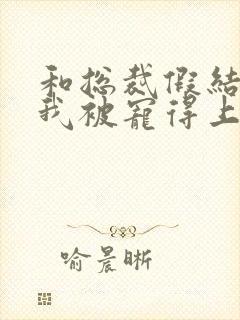 和总裁假结
我被宠得上
喻晨晰